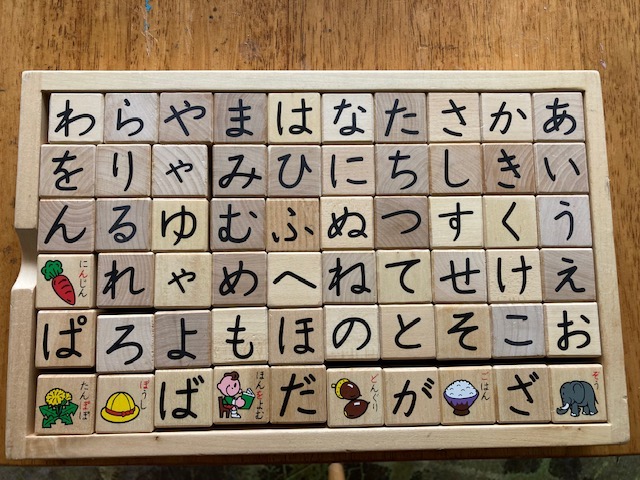 あいうえお
ぞう
かきくけこ
ざ
さしすせそ
ごはん
たちつてと
が
なにぬねの
どんぐり
はひふへほ
だ
まみむめも
ほんをよむ
やゃゆゃよ
ば
らりるれろ
ぼうし
わをん
にんじん
ぱ
たんぽぽ